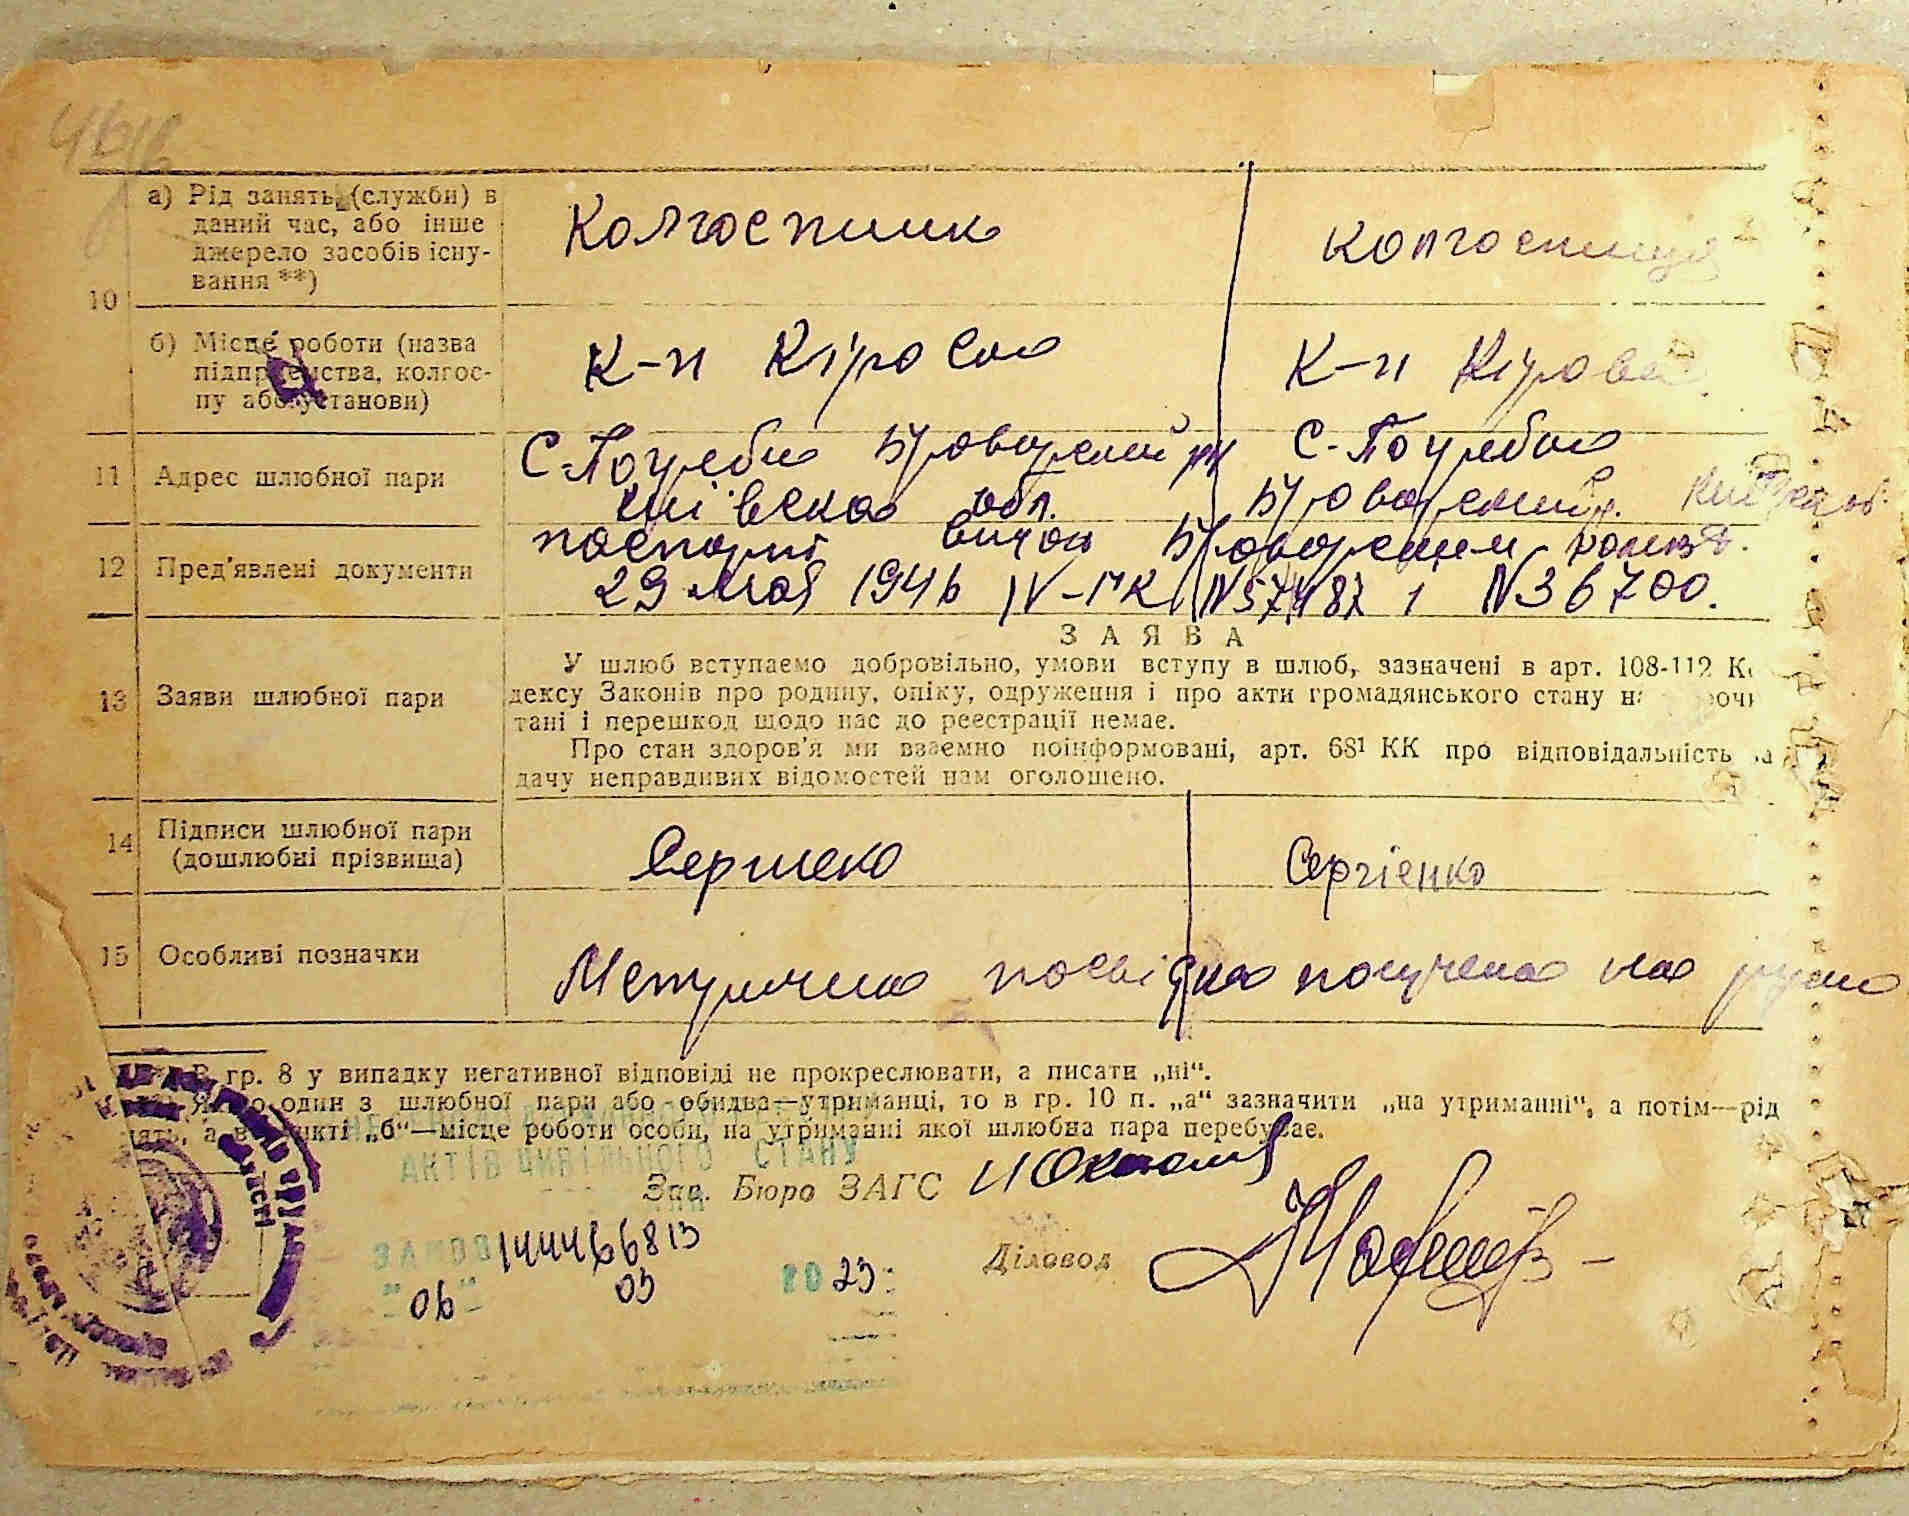 а) Рід занять (служби) в
даний час, або інше
джерело засобів існу-
вання **)
Колгоспник
колгоспниця
10
б) Місце роботи (назва
підприємства, колгос-
пу або установи)
К-п Кірова
К-п Кірова
11 Адрес шлюбної пари
С-Погреби Броварский рн
київска обл.
С-Погреби
Броварский р.
12 Пред'явлені документи
паспорті видан Броварским
29 мая 1946 IV-МК N 57487 і N 36700.
13 Заяви шлюбної пари
ЗАЯВА
У шлюб вступаємо добровільно, умови вступу в шлюб, зазначені в арт. 108-112 Ко
дексу Законів про родину, опіку, одруження і про акти громадянського стану н
тані і перешкод щодо нас до реєстрації немає.
Про стан здоров'я ми взаємно поінформовані, арт. 68¹ КК про відповідальність за
дачу неправдивих відомостей нам оголошено.
14 Підписи шлюбної пари
(дошлюбні прізвища)
Сергієнко
15 Особливі позначки
Метрична посвідка получена на руки
В гр. 8 у випадку негативної відповіді не прокреслювати, а писати „ні“.
один з шлюбної пари або обидва—утриманці, то в гр. 10 п. „а“ зазначити „на утриманні“, а потім—рід
нять, а в пункті „б“—місце роботи особи, на утриманні якої шлюбна пара перебуває.
АКТІВ ЦИВІЛЬНОГО СТАНУ
Зав. Бюро ЗАГС
Діловод
"06" 03 2023